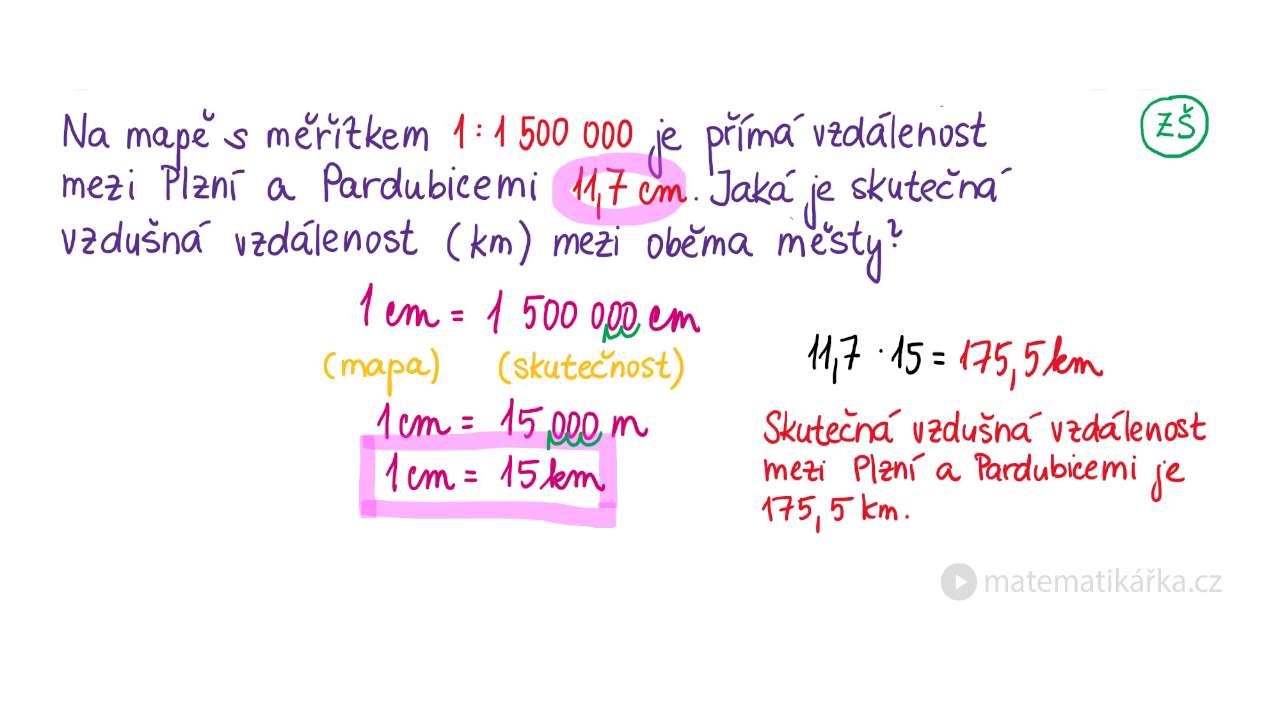 Na mapě s měřítkem 1 : 1 500 000 je přímá vzdálenost
ZŠ
mezi Plzní a Pardubicemi 11,7 cm. Jaká je skutečná
vzdušná vzdálenost (km) mezi oběma městy?
1 cm = 1 500 000 cm
(mapa) (skutečnost)
1 cm = 15 000 m
1 cm = 15 km
11,7 · 15 = 175,5 km
Skutečná vzdušná vzdálenost
mezi Plzní a Pardubicemi je
175,5 km.
matematikářka.cz